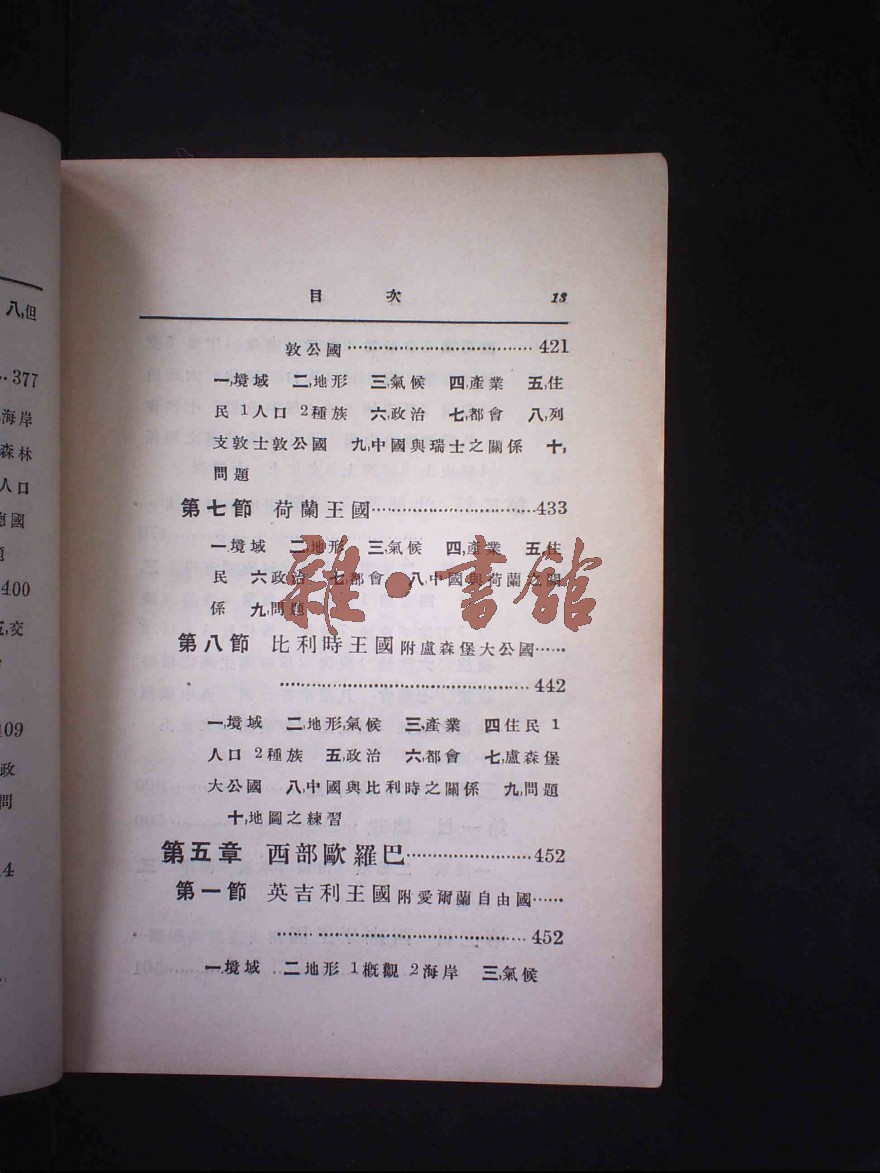 八,但
377
海岸
森林
人口
德國
400
五,交
409
政
問
目 次 13
敦公國 421
一,境域 二,地形 三,氣候 四,產業 五,住
民 1人口 2種族 六,政治 七,都會 八,列
支敦士敦公國 九,中國與瑞士之關係 十,
問題
第七節 荷蘭王國 433
一,境域 二,地形 三,氣候 四,產業 五,住
民 六,政治 七,都會 八,中國與荷蘭之關
係 九,問題
雜·書館
第八節 比利時王國附盧森堡大公國
442
一,境域 二,地形,氣候 三,產業 四住民 1
人口 2種族 五,政治 六,都會 七,盧森堡
大公國 八,中國與比利時之關係 九,問題
十,地圖之練習
第五章 西部歐羅巴 452
第一節 英吉利王國附愛爾蘭自由國
452
一,境域 二地形 1概觀 2海岸 三,氣候